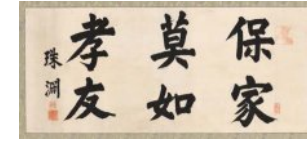 保家
莫如
孝友
珠渊